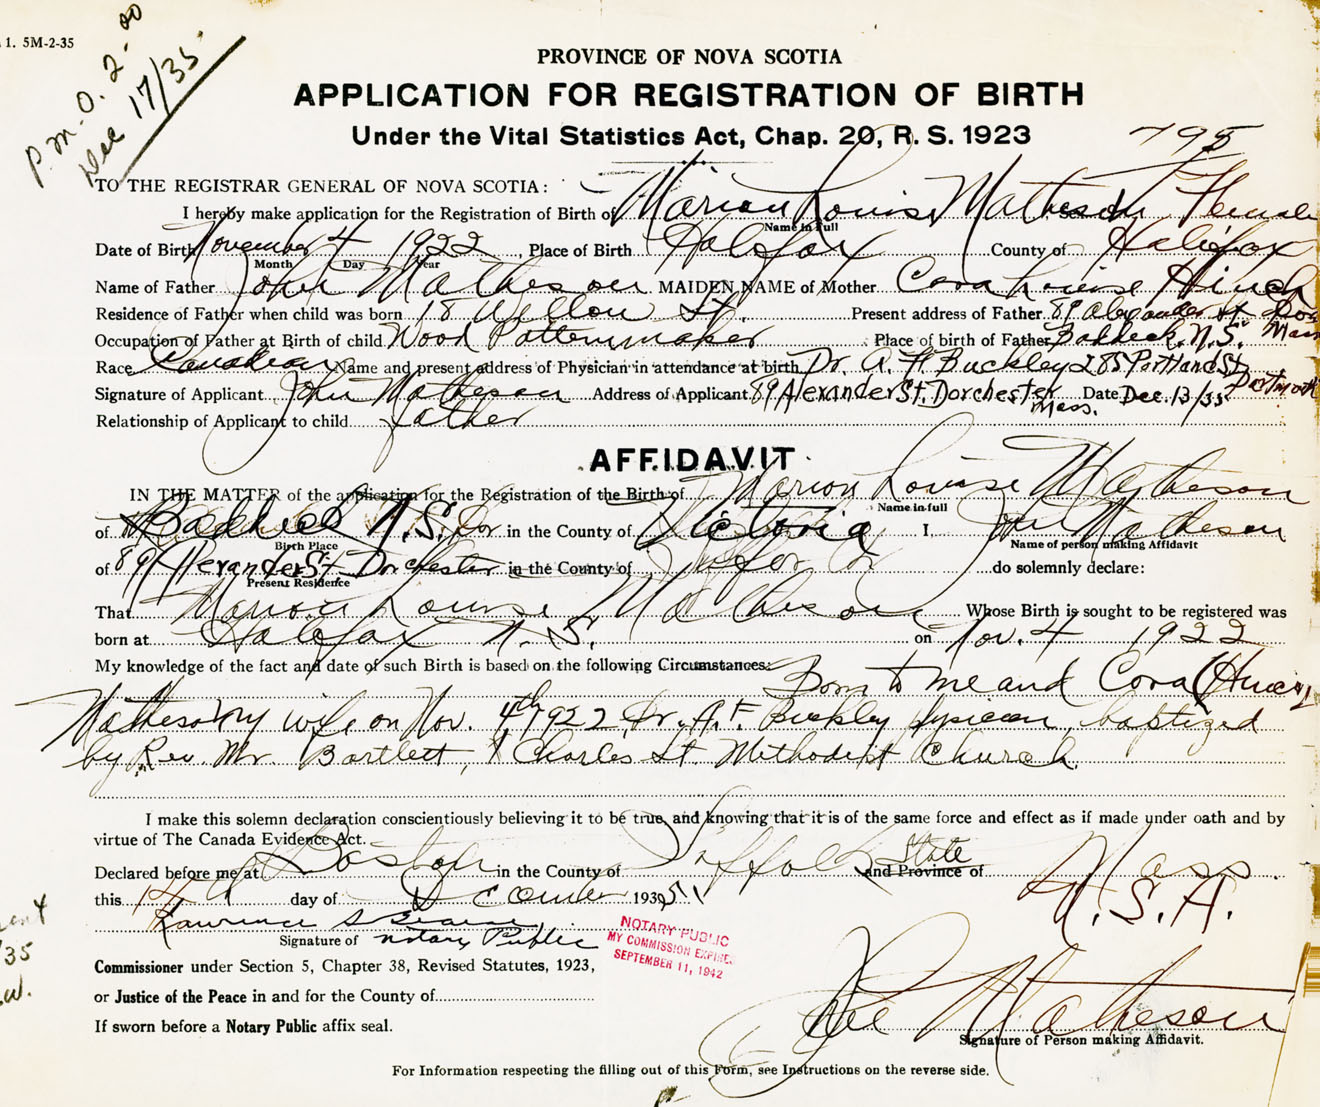 1. 5M-2-35
P.M.O. 2.00
Dec 17/35.
PROVINCE OF NOVA SCOTIA
APPLICATION FOR REGISTRATION OF BIRTH
Under the Vital Statistics Act, Chap. 20, R. S. 1923
795
TO THE REGISTRAR GENERAL OF NOVA SCOTIA:
I hereby make application for the Registration of Birth of Marion Louise Matheson Sex Female
Name in Full
Date of Birth November 4 1922, Place of Birth Halifax County of Halifax
Month Day Year
Name of Father John Matheson MAIDEN NAME of Mother Cora Louise Hinch
Residence of Father when child was born 18 Willow St. Present address of Father 89 Alexander St Dor
Mass
Occupation of Father at Birth of child Wood Patternmaker Place of birth of Father Baddeck, N.S.
Race Canadian Name and present address of Physician in attendance at birth Dr. A. F Buckley 285 Portland St
Dartmouth
Signature of Applicant John Matheson Address of Applicant 89 Alexander St. Dorchester Mass. Date Dec. 13/35
Relationship of Applicant to child father
AFFIDAVIT
IN THE MATTER of the application for the Registration of the Birth of Marion Louise Matheson
Name in full
of Baddeck N.S. in the County of Victoria I John Matheson
Birth Place Name of person making Affidavit
of 89 Alexander St Dorchester in the County of do solemnly declare:
Present Residence
That Marion Louise Matheson Whose Birth is sought to be registered was
born at Halifax N.S. on Nov. 4 1922
My knowledge of the fact and date of such Birth is based on the following Circumstances:
Born to me and Cora (Hinch)
Matheson my wife on Nov. 4th 1922 Dr. A.F. Buckley physician, baptized
by Rev. Mr. Bartlett, Charles St. Methodist Church.
I make this solemn declaration conscientiously believing it to be true, and knowing that it is of the same force and effect as if made under oath and by
virtue of The Canada Evidence Act.
Declared before me at Boston in the County of Suffolk State and Province of Mass.
this day of December 1935 U.S.A.
Lawrence S
Signature of Notary Public
NOTARY PUBLIC
MY COMMISSION EXPIRES
SEPTEMBER 11, 1942
/35
.W.
Commissioner under Section 5, Chapter 38, Revised Statutes, 1923,
or Justice of the Peace in and for the County of
Matheson
If sworn before a Notary Public affix seal.
Signature of Person making Affidavit.
For Information respecting the filling out of this Form, see Instructions on the reverse side.